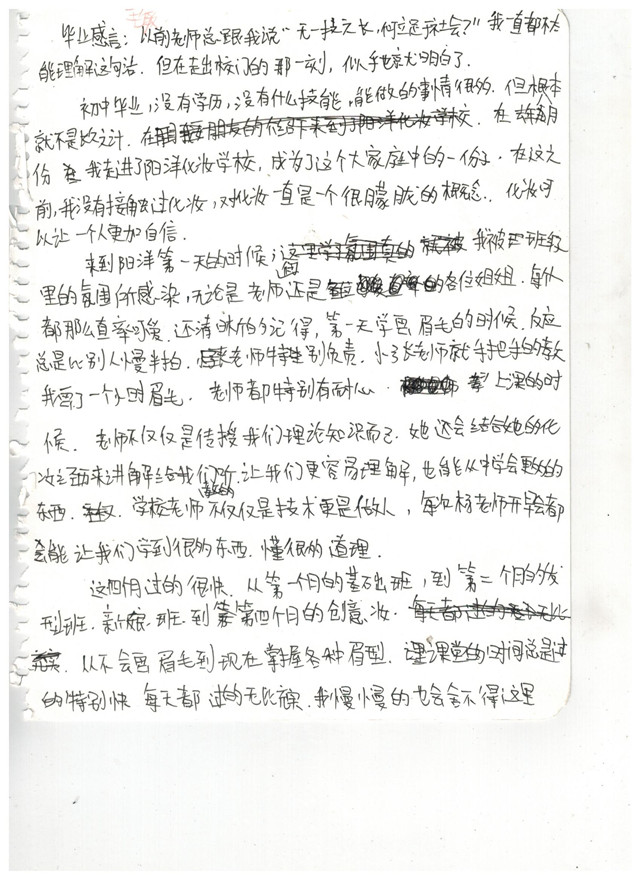 毕业感言：以前老师总跟我说“无一技之长，何立足于社会？”我一直都不太
能理解这句话．但在走出校门的那一刻，似乎惊犬明白了．
初中毕业，没有学历，没有什么技能，能做的事情很的．但根本
就不是长久之计．在朋友的介绍下来到了阳洋化妆学校．在去年月
份 我走进了阳洋化妆学校，成为了这个大家庭中的一份子．在这之
前，我没有接触过化妆，对化妆一直是一个很朦胧的概念．化妆可
以让一个人更加自信．
来到阳洋第一天的时候，这里学习氛围真的 就被 我被 班级
里的氛围所感染，无论是老师还是 各位姐姐．每个人
都那么直率可爱．还清晰的记得，第一天学画眉毛的时候．反应
总是比别人慢半拍．老师特别负责．小张老师就手把手的教
我画了一个小时眉毛．老师都特别有耐心． 上课的时
候．老师不仅仅是传授我们理论知识而已．她还会结合她的化
妆经历来讲解给我们听．让我们更容易理解，也能从中学会更多的
东西． 学校老师教的不仅仅是技术更是做人，每次杨老师开早会都
会能让我们学到很的东西．懂很的道理．
这四个月过的很快．从第一个月的基础班，到第二个月的发
型班．新娘班到第四个月的创意妆．每天都过的无比
充实．从不会画眉毛到现在掌握各种眉型．课堂的时间总是过
的特别快 每天都过的无比充实．我慢慢的也会舍不得这里